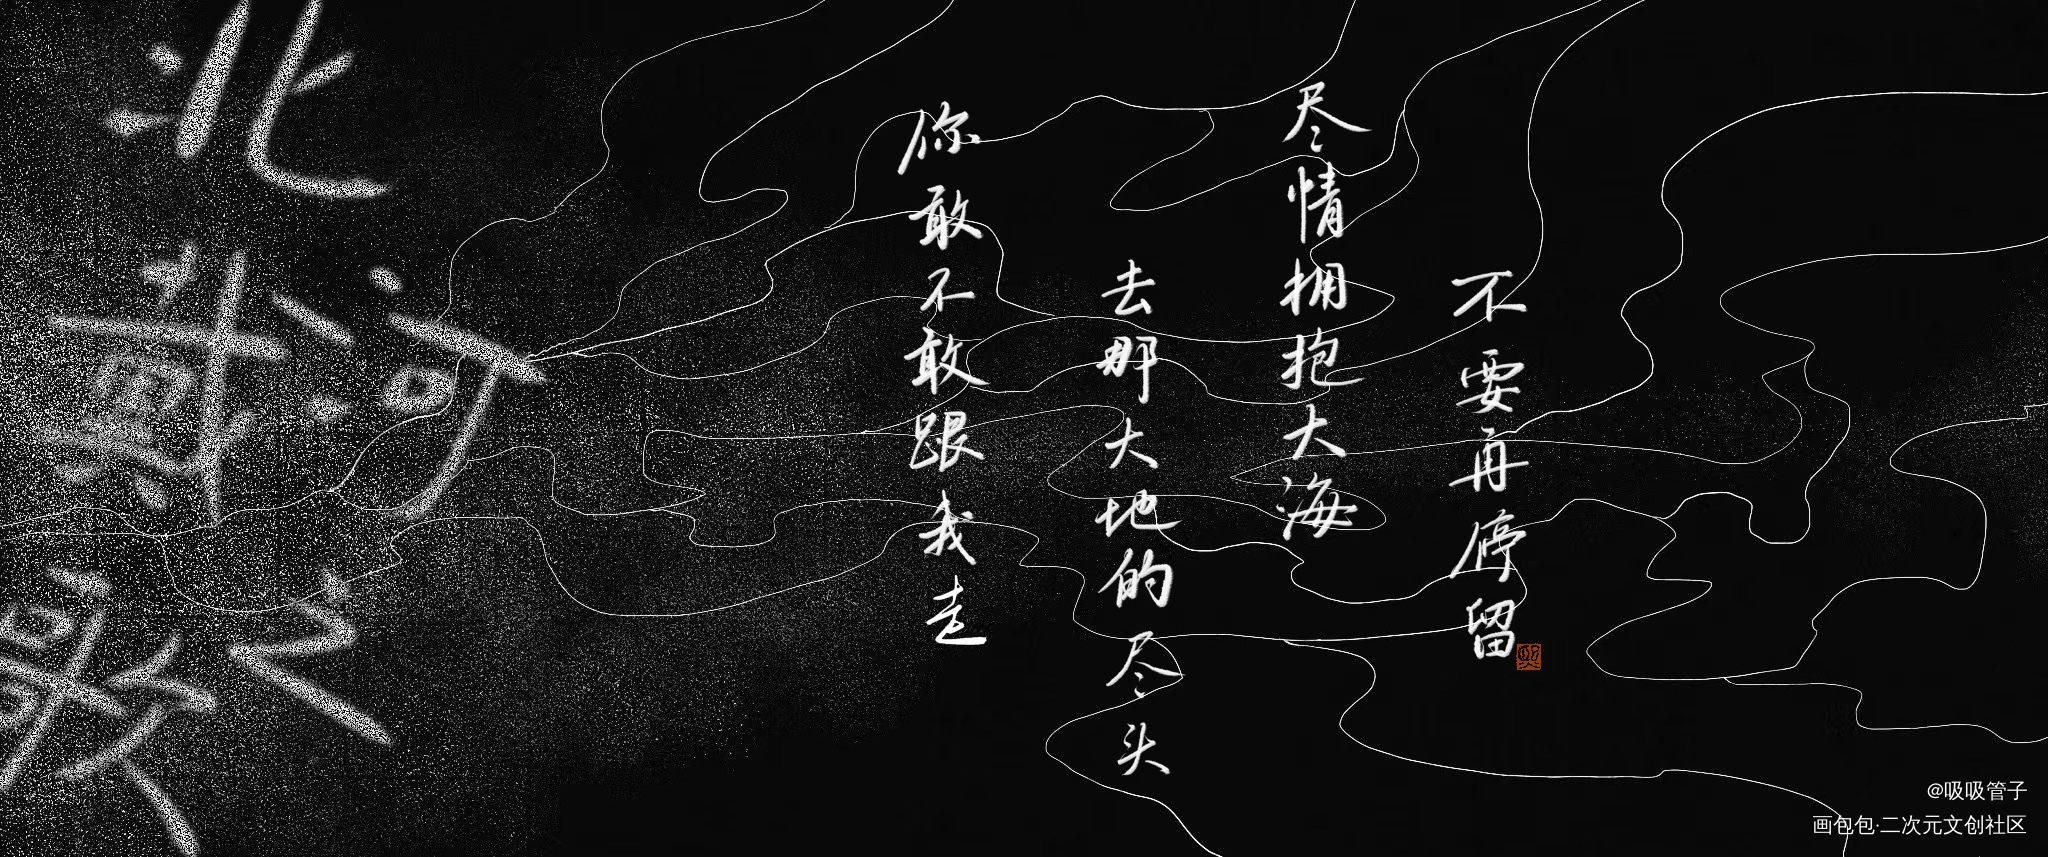 北戴河之歌
你敢不敢跟我走
去那大地的尽头
尽情拥抱大海
不要再停留
@吸吸管子
画包包·二次元文创社区